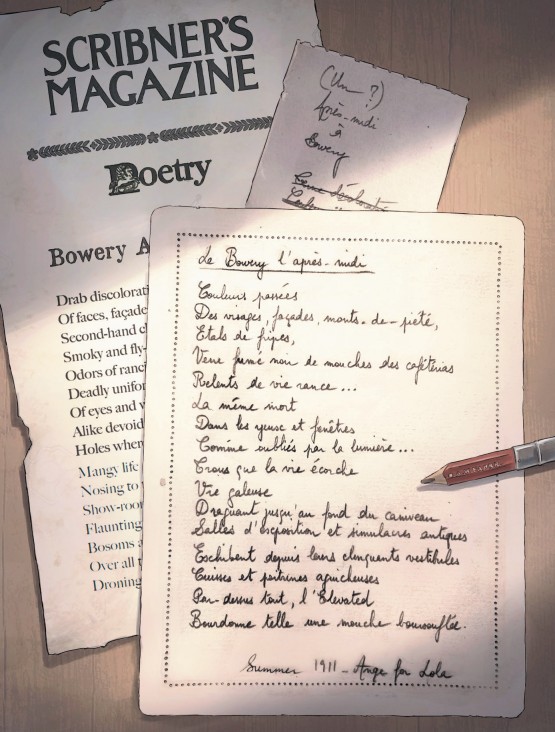 SCRIBNER'S
MAGAZINE
Poetry
Bowery A
Drab discolorati
Of faces, façade
Second-hand c
Smoky and fly-
Odors of ranc
Deadly unifor
Of eyes and
Alike devoid
Holes wher
Mangy life
Nosing to
Show-roo
Flaunting
Bosoms a
Over all
Droning
(Un ?)
Après-midi
à
Bowery
Le Bowery l'après-midi
Couleurs passées
Des visages, façades, monts-de-piété,
Etals de fripes,
Verre fumé noir de mouches des cafétérias
Relents de vie rance...
La même mort
Dans les yeux et fenêtres
Comme oubliés par la lumière...
Trous que la vie écorche
Vie galeuse
Draguant jusqu'au fond du caniveau
Salles d'exposition et simulacres antiques
Exhibent depuis leurs clinquants vestibules
Cuisses et poitrines aguicheuses
Par-dessus tout, l'Elevated
Bourdonne telle une mouche boursouflée.
Summer 1911 - Ange for Lola